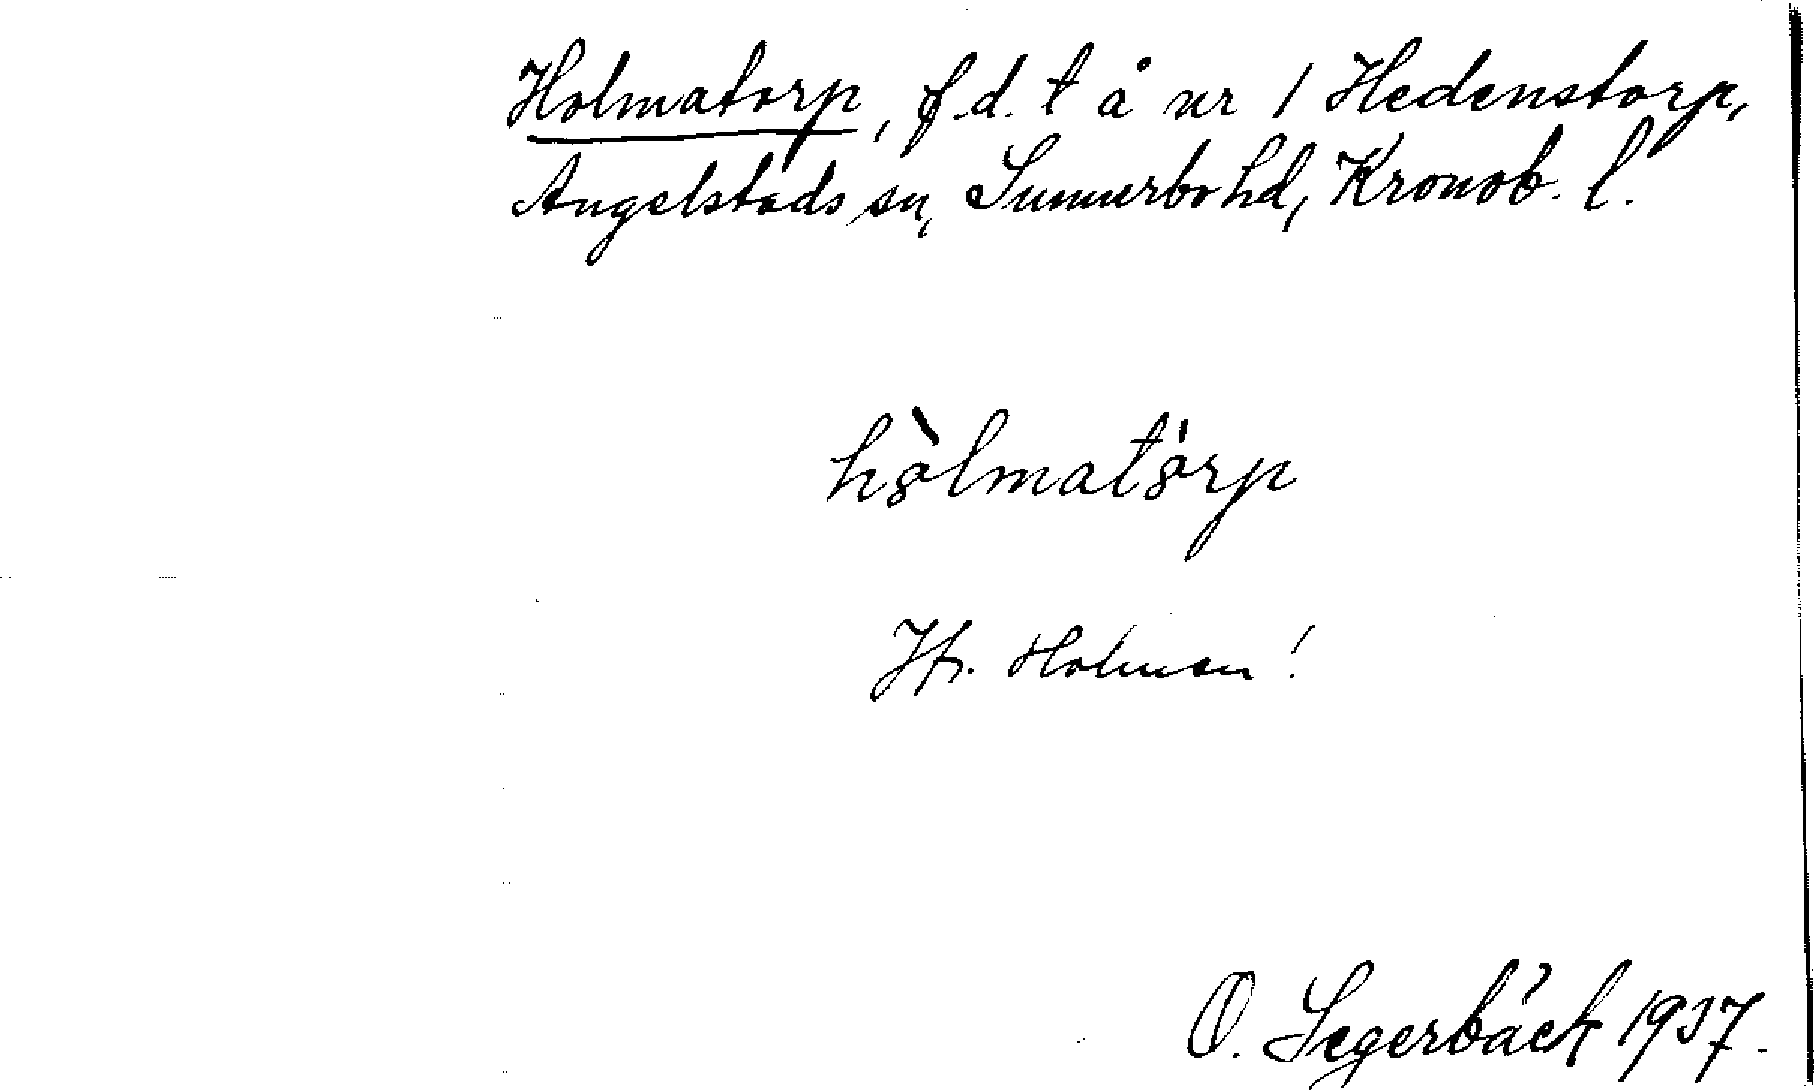 Holmatorp, f.d. t å nr 1 Hedenstorp,
Angelstads sn, Sunnerbo hd, Kronob. l.
hòlmatórp
Jfr. Holmen!
O. Segerbäck 1937.